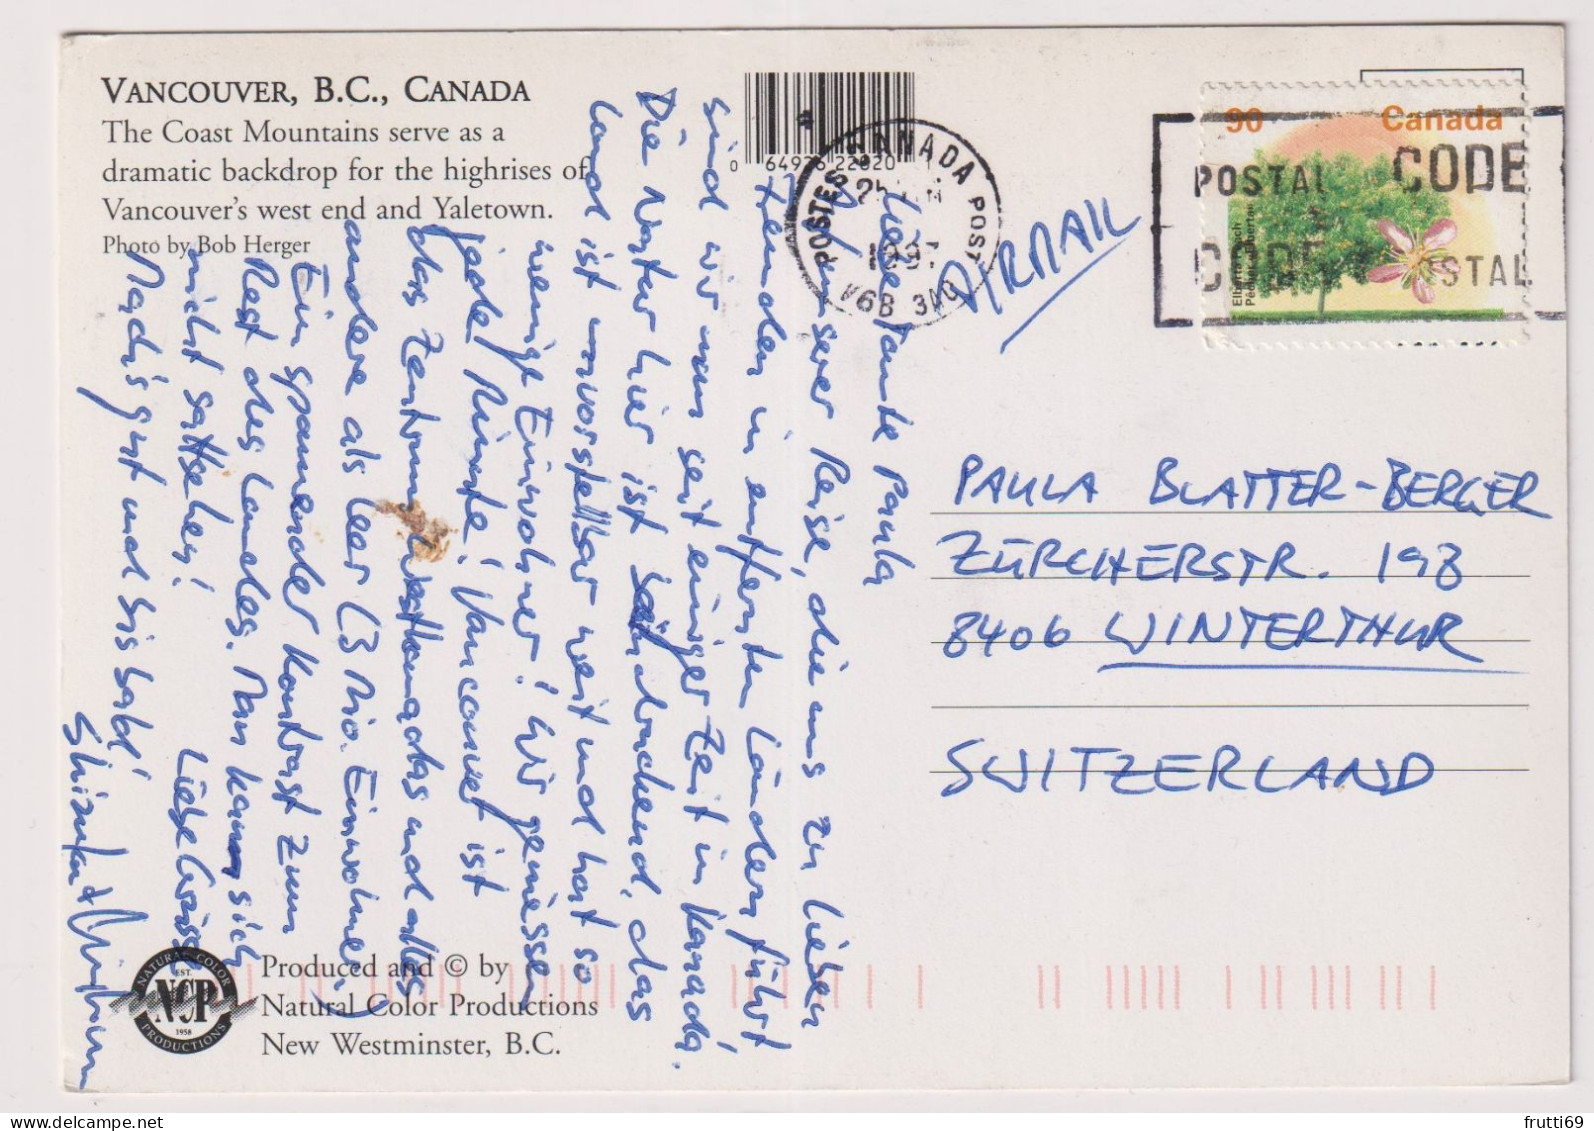 VANCOUVER, B.C., CANADA
The Coast Mountains serve as a
dramatic backdrop for the highrises of
Vancouver's west end and Yaletown.
Photo by Bob Herger
0 64926 22820
CANADA POST
POSTES
1997
V6B 3A0
POSTAL CODE
CODE POSTAL
90 Canada
AIRMAIL
Liebe Tante Paula
Auf unserer Reise, die uns zu lieben
Freunden in entfernten Ländern führt
sind wir nun seit einiger Zeit in Kanada.
Die Natur hier ist beeindruckend, das
Land ist unvorstellbar weit und hat so
wenige Einwohner! Wir geniessen
jede Minute! Vancouver ist
das Zentrum Westkanadas und alles
andere als leer (3 Mio. Einwohner)
Ein spannender Kontrast zum
Rest des Landes. Man kann sich
nicht sattsehen!
Mach's gut und bis bald!
Liebe Grüsse
PAULA BLATTER-BERGER
ZÜRCHERSTR. 198
8406 WINTERTHUR
SWITZERLAND
NATURAL COLOR
EST.
NCP
1958
PRODUCTIONS
Produced and © by
Natural Color Productions
New Westminster, B.C.
frutti69